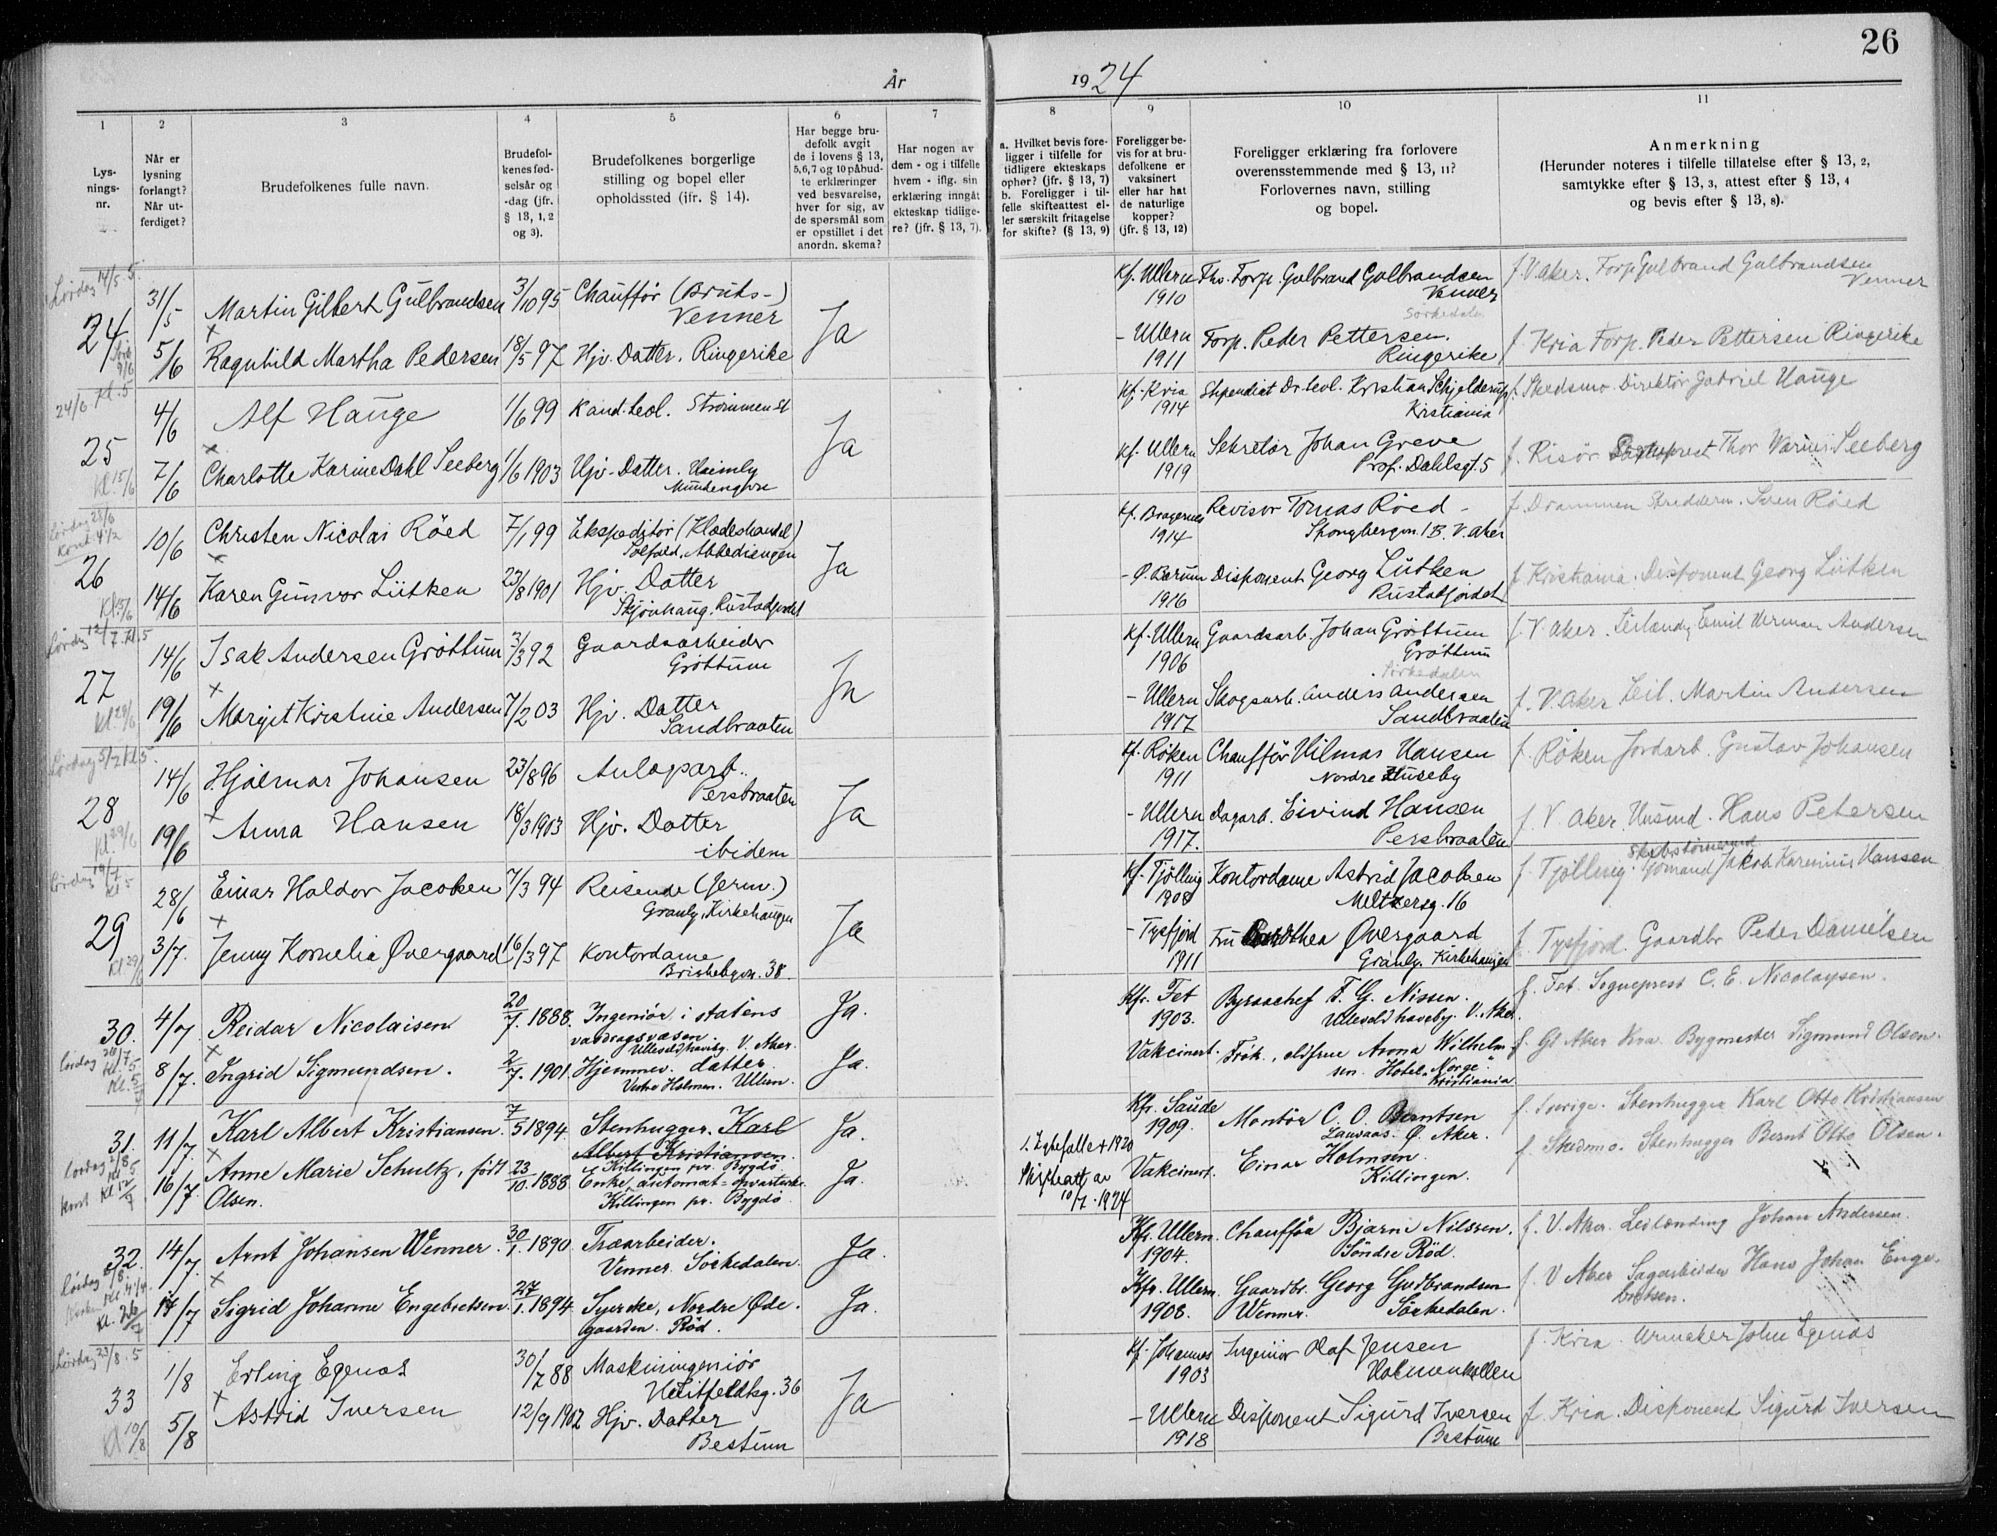 26
År 1924
1
2
3
4
5
6
7
8
9
10
11
Lys-
nings-
nr.
Når er
lysning
forlangt?
Når ut-
ferdiget?
Brudefolkenes fulle navn.
Brudefol-
kenes fød-
selsår og
-dag (jfr.
§ 13, 1, 2
og 3).
Brudefolkenes borgerlige
stilling og bopel eller
opholdssted (jfr. § 14).
Har begge bru-
defolk avgit
de i lovens § 13,
5,6,7 og 10 påbud-
te erklæringer
ved besvarelse,
hver for sig, av
de spørsmål som
er opstillet i det
anordn. skema?
Har nogen av
dem - og i tilfelle
hvem - iflg. sin
erklæring inngåt
ekteskap tidlige-
re? (jfr. § 13, 7).
a. Hvilket bevis fore-
ligger i tilfelle for
tidligere ekteskaps
ophør? (jfr. § 13, 7)
b. Foreligger i til-
felle skifteattest el-
ler særskilt fritagelse
for skifte? (§ 13, 9)
Foreligger be-
vis for at bru-
defolkene er
vaksinert
eller har hat
de naturlige
kopper?
(jfr. § 13, 12)
Foreligger erklæring fra forlovere
overensstemmende med § 13, 11?
Forlovernes navn, stilling
og bopel.
Anmerkning
(Herunder noteres i tilfelle tillatelse efter § 13, 2,
samtykke efter § 13, 3, attest efter § 13, 4
og bevis efter § 13, 8).
Lørdag 14/5 5.
24
31/5 Martin Gilbert Gulbrandsen 3/10 95 Chauffør (Bruks-)
Venner
Ja
Kf. Ullern
1910
Ths. Forp. Gulbrand Gulbrandsen
Venner
Sørkedalen
f. V. Aker. Forp. Gulbrand Gulbrandsen
Venner
5/6 Ragnhild Martha Pedersen 18/5 97 Hjv. Datter. Ringerike
- Ullern
1911
Forp. Peder Pettersen.
Ringerike
f. Kria Forp. Peder Pettersen Ringerike
24/6 Kl. 5
25
4/6 Alf Hauge 1/6 99 Kand. teol. Strømmen St
Ja
Kf. Kria
1914
Stipendiat Dr. teol. Kristian Schjelderup
Kristiania
f. Skedsmo. Direktør Gabriel Hauge
Kl. 15/6
7/6 Charlotte Karine Dahl Seeberg 1/6 1903 Hjv. Datter. Heimly
Kf. Ullern
1919
Sekretær Johan Greve
Prof. Dahlsgt. 5
f. Risør Thor Seeberg
26
10/6 Christen Nicolai Röed 7/1 99 Ekspeditør (Klædeshandel)
Solfald, Abbediengen
Ja
Kf. Bragernes
1914
Revisor Tomas Röed -
Spongbergvn. 1B. V. Aker
f. Drammen Skredderm. Sven Röed
14/6 Karen Gunvor Lütken 23/8 1901 Hjv. Datter
Skjönhaug. Rustadfjordet
- Ø. Bærum
1916
Disponent Georg Lütken
Rustadfjordet
f. Kristiania. Disponent Georg Lütken
Lørdag 12/7. Kl. 5
27
14/6 Isak Andersen Gröttum 3/3 92 Gaardsarbeider
Gröttum
Ja
Kf. Ullern
1906
Gaardsarb. Johan Gröttum
Gröttum
Sørkedalen
f. V. Aker. Leilændg Emil Herman Andersen
Kl 29/6
19/6 Margit Kristine Andersen 7/2 03 Hjv. Datter
Sandbraaten
- Ullern
1917
Skogsarb. Anders Andersen
Sandbraaten
f. V. Aker Leil. Martin Andersen
Lørdag 5/7 Kl. 5.
28
14/6 Hjalmar Johansen 23/8 96 Anlæparb..
Persbraaten
Ja
Kf. Røken
1911
Chauffør Hilmar Hansen
Nordre Huseby
f. Røken Jordarb. Gustav Johansen
Kl. 29/6
19/6 Anna Hansen 18/3 1903 Hjv. Datter
ibidem
- Ullern
1917.
Dagarb. Eivind Hansen
Persbraaten
f. V. Aker Husmd. Hans Petersen
Lørdag 19/7
Kl 5
29
28/6 Einar Haldor Jacobsen 7/3 94 Reisende (Jernv.)
Granly, Kirkehaugen
Ja
Kf. Tjølling
1908
Kontordame Astrid Jacobsen
Meltzersg. 16
f. Tjølling. Skibstømmermd
Jakob Karenius Hansen
Kl 29/6
3/7. Jenny Kornelia Øvergaard 16/3 97 Kontordame
Briskebyvn. 38.
- Tysfjord
1911
Fru Dorothea Øvergaard
Granly. Kirkehaugen
f. Tysfjord. Gaardbr Peder Danielsen
30.
4/7 Reidar Nicolaisen. 20/7. 1888. Ingeniør i statens
vasdragsvæsen
Ullevold haveby. V. Aker.
Ja.
Kfr. Fet
1903.
Byraachef F. G. Nissen.
Ullevold haveby. V. Aker.
f. Fet. Sogneprest C. E. Nicolaysen.
Lørdag 26/7. 5
8/7. Ingrid Sigmundsen. 2/7. 1901. Hjemmev. datter.
Vestre Holmen. Ullern.
Ja.
Vakcinert.
Frøk., oldfrue Anna Wilhelm-
sen. Hotel "Norge".
Kristiania
f. Gl Aker Kria. Bygmester Sigmund Olsen.
31.
11/7. Karl Albert Kristiansen. 7/5 1894. Stenhugger. Karl
Albert Kristiansen.
Killingen pr. Bygdø
Ja.
Kfr. Saude
1909.
Montør C. O. Berntsen
Ø. Aker.
f. Sverige. Stenhugger Karl Otto Kristiansen
16/7 Anne Marie Schultz, født
Olsen.
23/10. 1888. Enke,
Killingen pr. Bygdø.
Ja.
Skifteatt. av
10/7. 1924
Vakcinert.
Einar Holmsen.
Killingen.
f. Skedsmo. Stenhugger Bernt Otto Olsen.
32.
14/7. Arnt Johansen Wenner. 30/1. 1890. Træarbeider.
Venner. Sørkedalen.
Ja.
Kfr. Ullern.
1904.
Chauffør Bjarne Nilssen.
Søndre Rød.
f. V. Aker. Leilænding Johan Andersen.
Kl. 26/7
17/7 Sigrid Johanne Engebretsen. 27/1. 1894. Syerske, Nordre Øde-
gaarden. Rød.
Ja.
Kfr. Ullern.
1908.
Gaardbr. Georg Gudbrandsen
Wenner. Sørkedalen.
f. V Aker Sagarbeider Hans Johan Enge-
bretsen.
Lørdag 23/8. 5
33
1/8 Erling Egenæs 30/7 88 Maskiningeniør
Huitfeldtsg. 36
Ja
Kf. Johannes
1903
Ingeniør Olaf Jensen
Holmenkollen
f. Kria. Urmaker John Egenæs
Kl 10/8
5/8 Astrid Iversen 12/9 1902 Hjv. Datter
Bestum
- Ullern
1918
Disponent Sigurd Iversen
Bestum
f. Kria. Disponent Sigurd Iversen